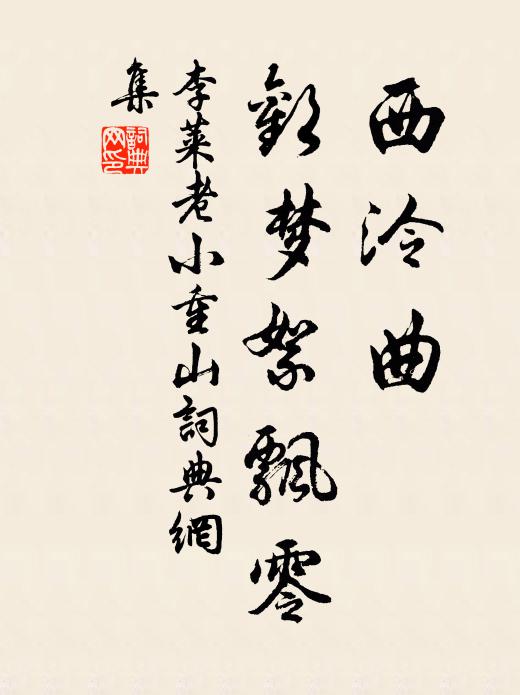 西泠曲
歡梦絮飄零
李萊老小重山詞典網
集
詞典
网印